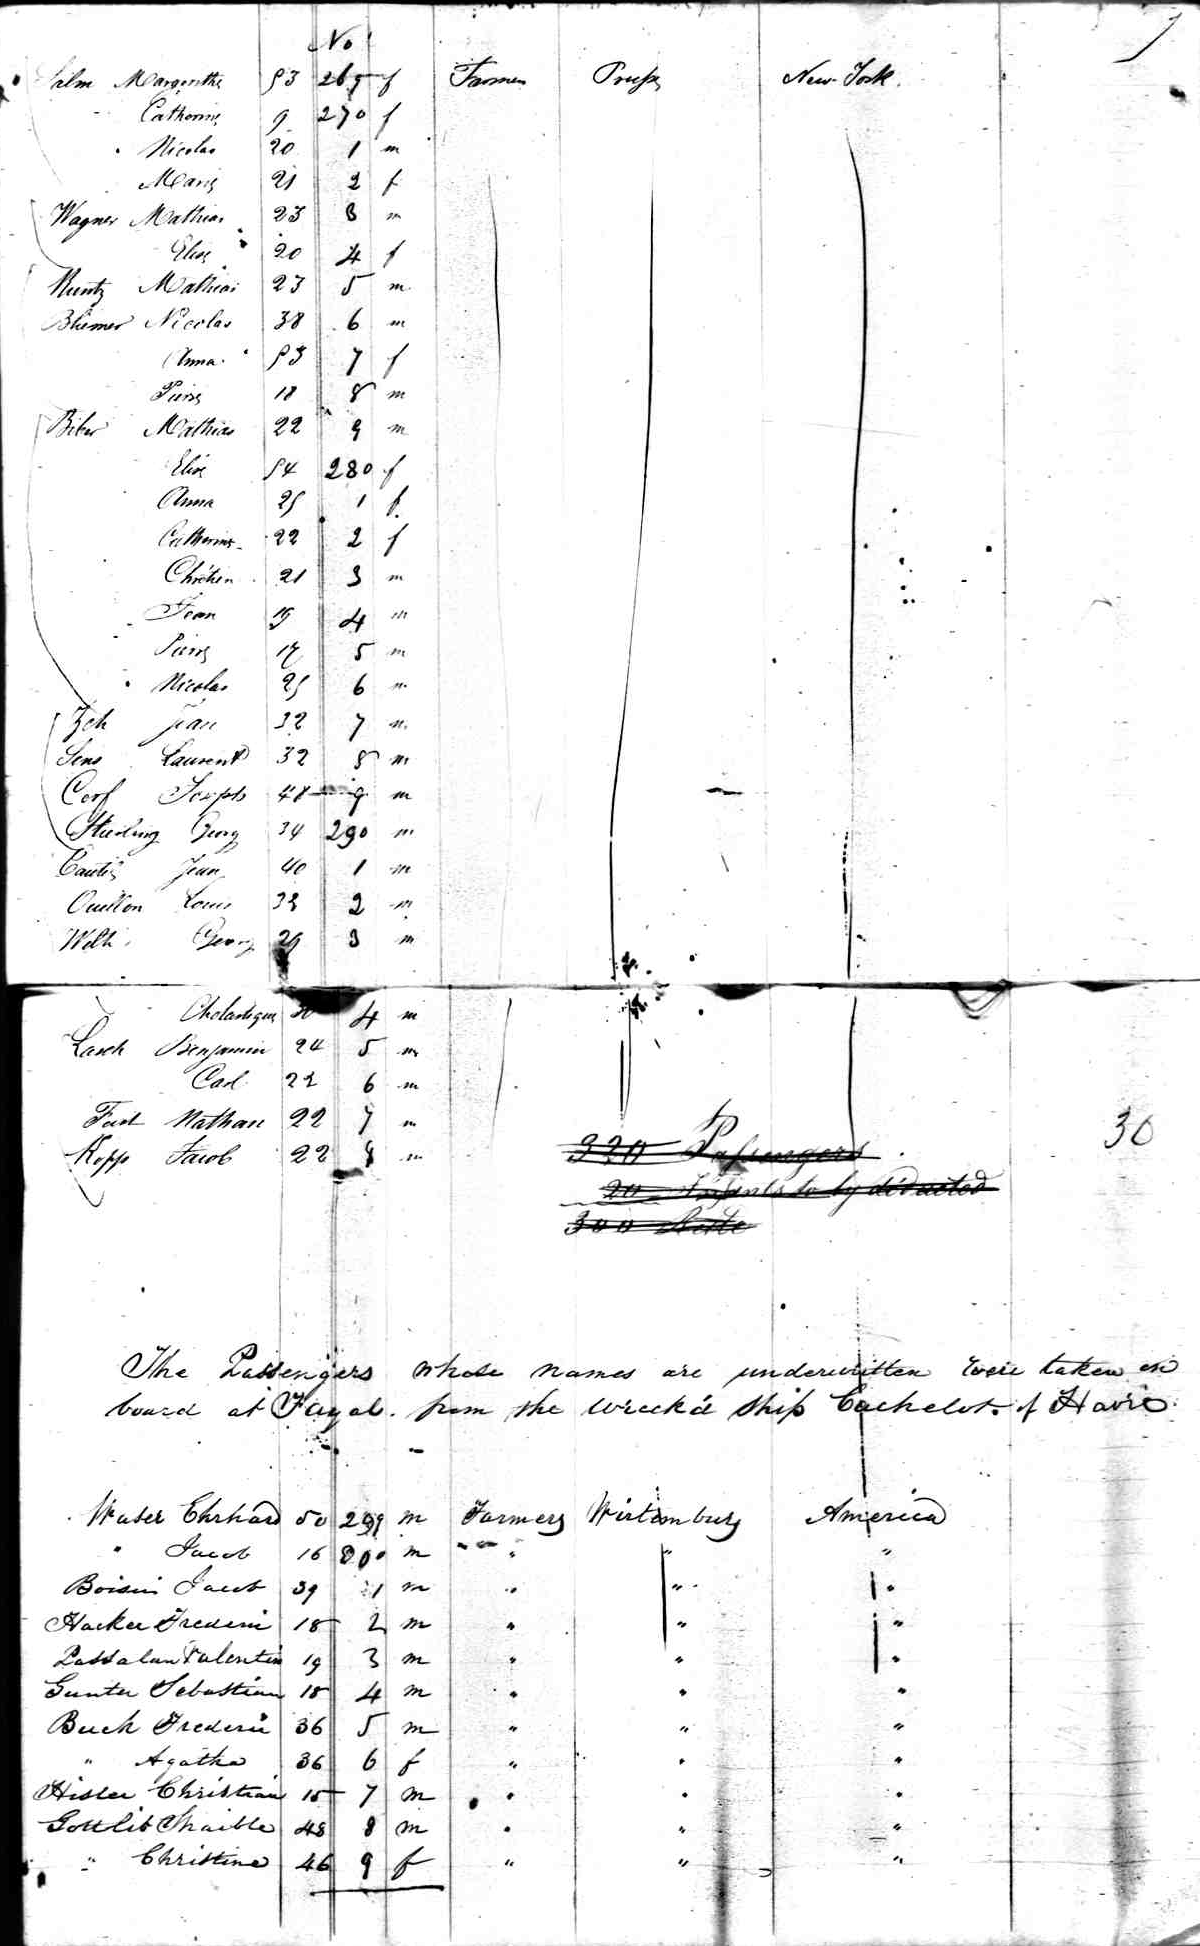 No
Salm Margerithe 53 269 f Farmer Pruss New York.
Catherine 9 270 f
Nicolas 20 1 m
Marie 21 2 f
Wagner Mathias 23 3 m
Elise 20 4 f
Kuntz Mathias 23 5 m
Blumer Nicolas 38 6 m
Anna 53 7 f
Pierre 18 8 m
Biber Mathias 22 9 m
Elise 54 280 f
Anna 25 1 f
Catherine 22 2 f
Chrétien 21 3 m
Jean 19 4 m
Pierre 17 5 m
Nicolas 25 6 m
Zeh Jean 32 7 m
Sens Laurent 32 8 m
Cerf Joseph 48 9 m
Georg 34 290 m
Jean 40 1 m
Ouillon Louis 33 2 m
Welti Georg 29 3 m
30 4 m
Lasch Benjamin 24 5 m
Carl 22 6 m
Fast Nathan 22 7 m
Kopp Jacob 22 8 m
30
320 Passengers
20 Infants to by deducted
300
The Passengers whose names are underwritten were taken on
board at Fayal. from the wreck'd Ship Cachelot. of Havre
Waser Ehrhard 50 299 m Farmers Wirtemburg America
" Jacob 16 300 m " " "
Boisin Jacob 39 1 m " " "
Hacker Frederic 18 2 m " " "
Passalan Valentin 19 3 m " " "
Gunter Sebastian 18 4 m " " "
Buch Frederic 36 5 m " " "
" Agatha 36 6 f " " "
Hisler Christian 15 7 m " " "
Gottlib Shaible 48 8 m " " "
" Christine 46 9 f " " "